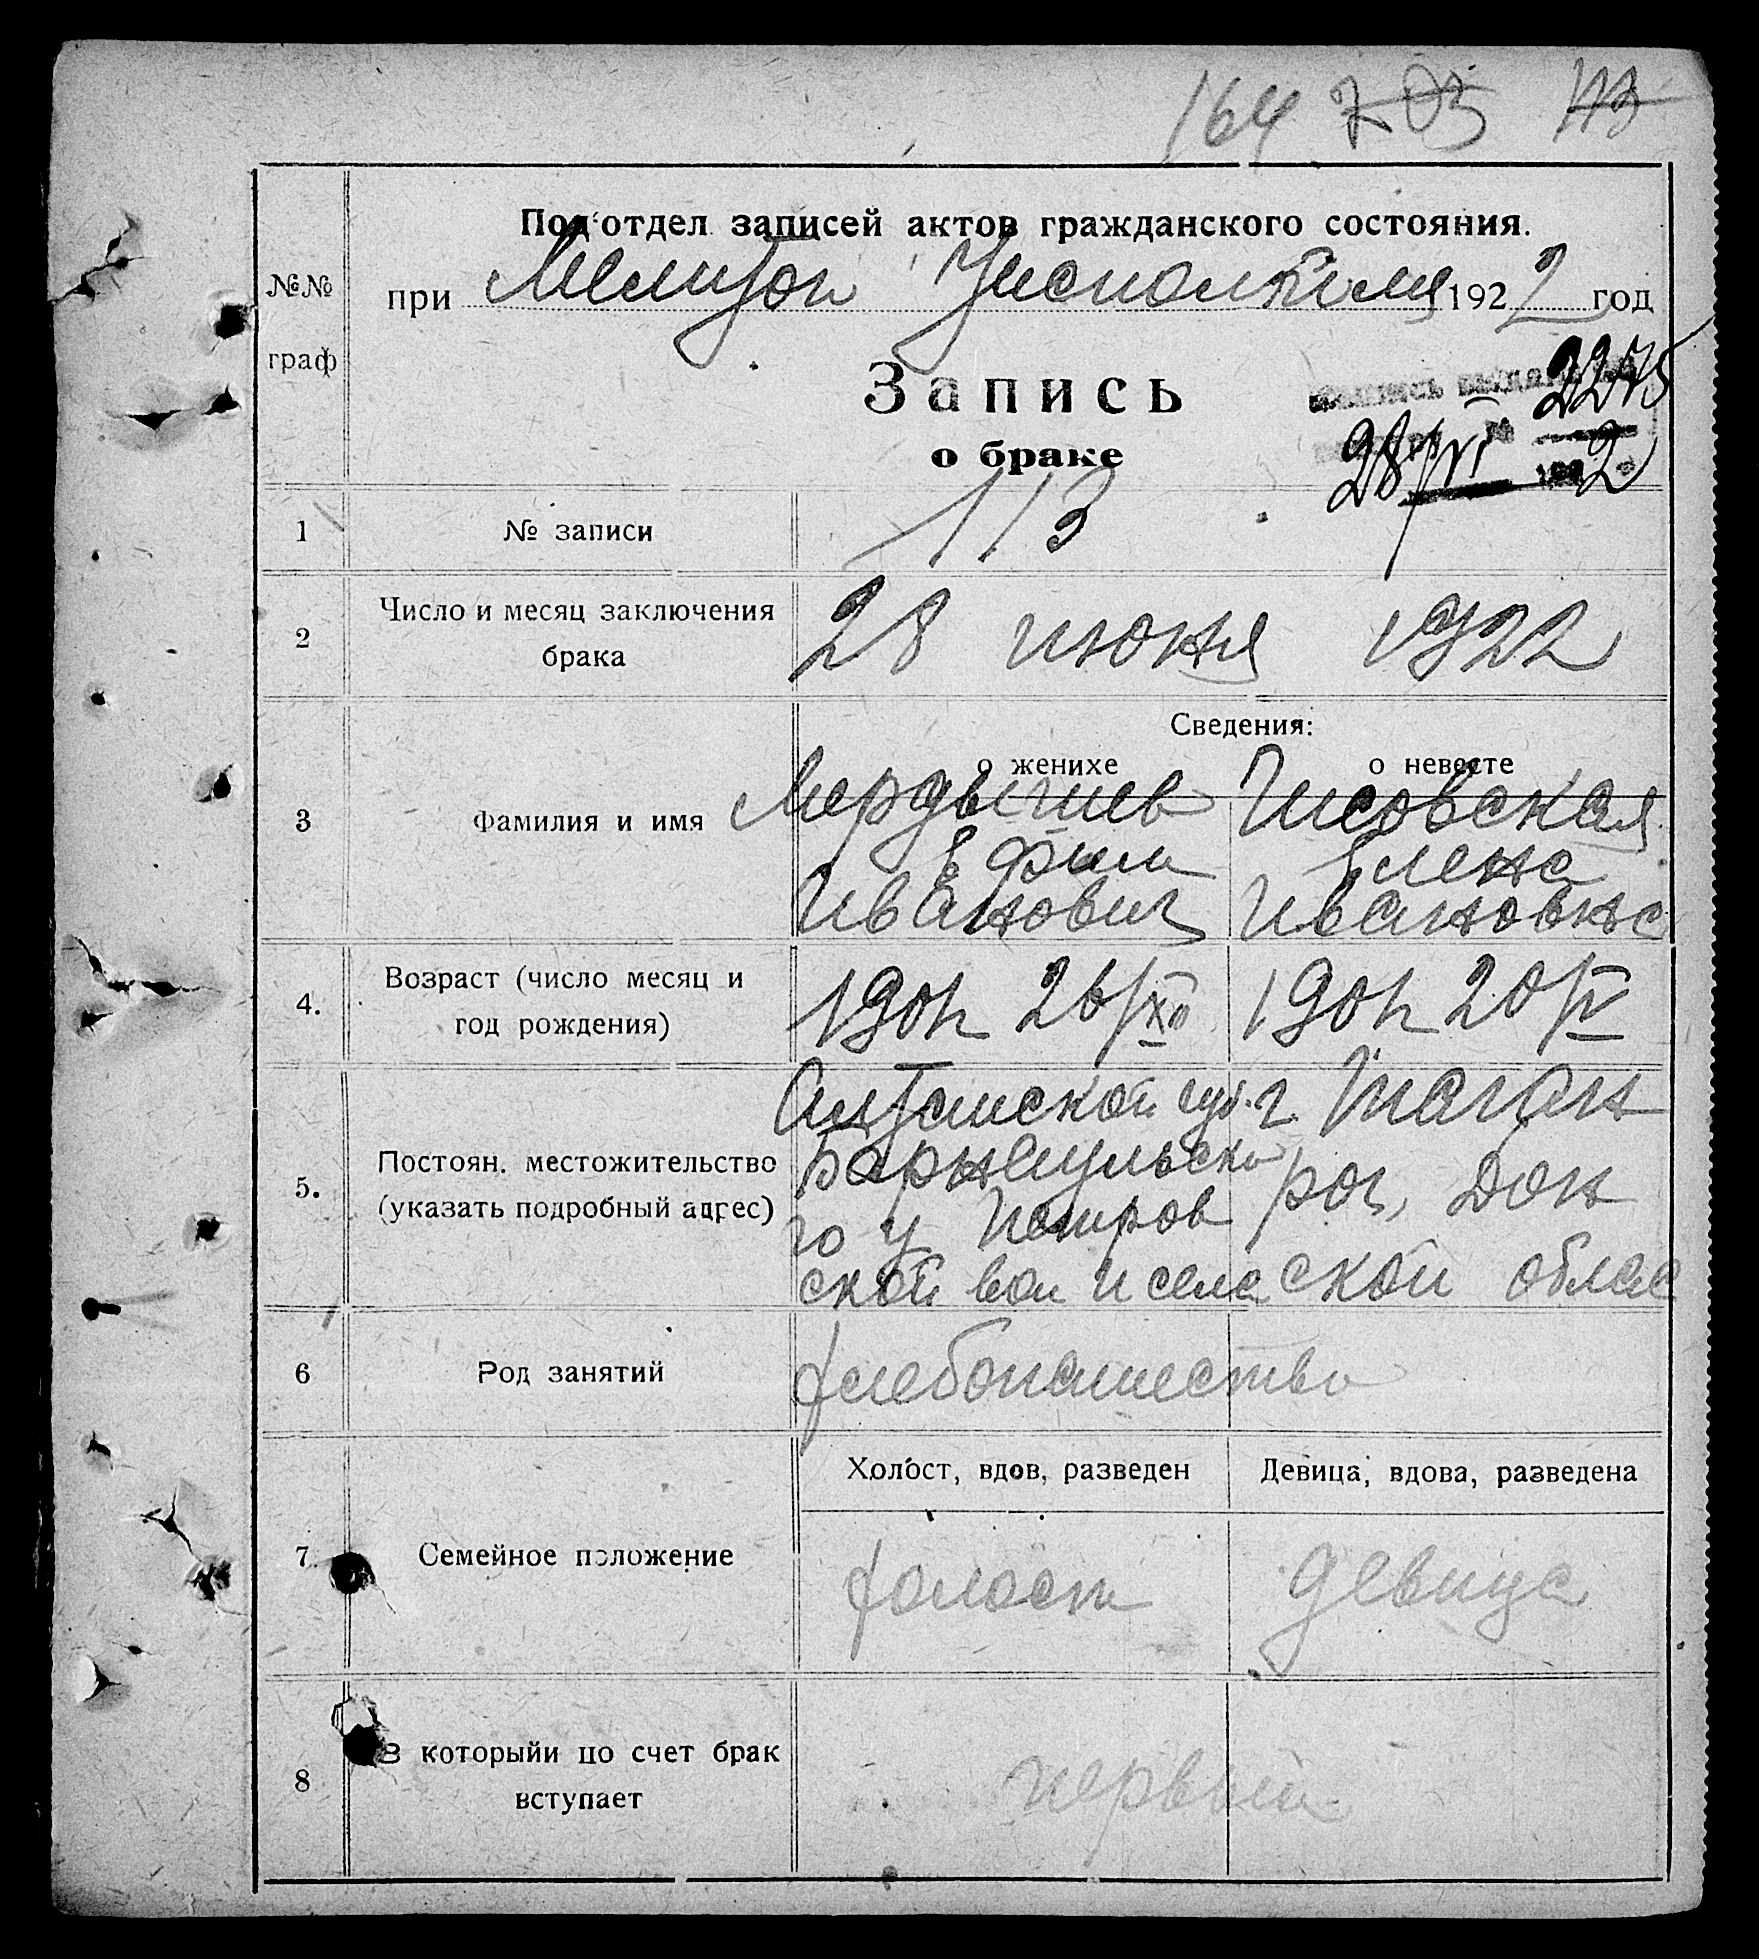 164 703 113
Под'отдел записей актов гражданского состояния.
№№
при Мелитоп Уисполкомя 1922 год
граф
Запись
2275
о браке
28/VI 2
1 № записи 113
2 Число и месяц заключения брака 28 июня 1922
Сведения:
о женихе о невесте
3 Фамилия и имя
Чисовская
Ефим Елена
Иванович Ивановна
4. Возраст (число месяц и
год рождения)
19оп 26/XII 19оп 20/IV
5. Постоян. местожительство
(указать подробный адрес)
Алтайской губ. г. Таган
Барнаульско рог, Дон
го у Петров
ской вол и села ской облас
6 Род занятий хлебопашество
Холост, вдов, разведен Девица, вдова, разведена
7 Семейное положение холост девица
8 В которыйи по счет брак
вступает
первый